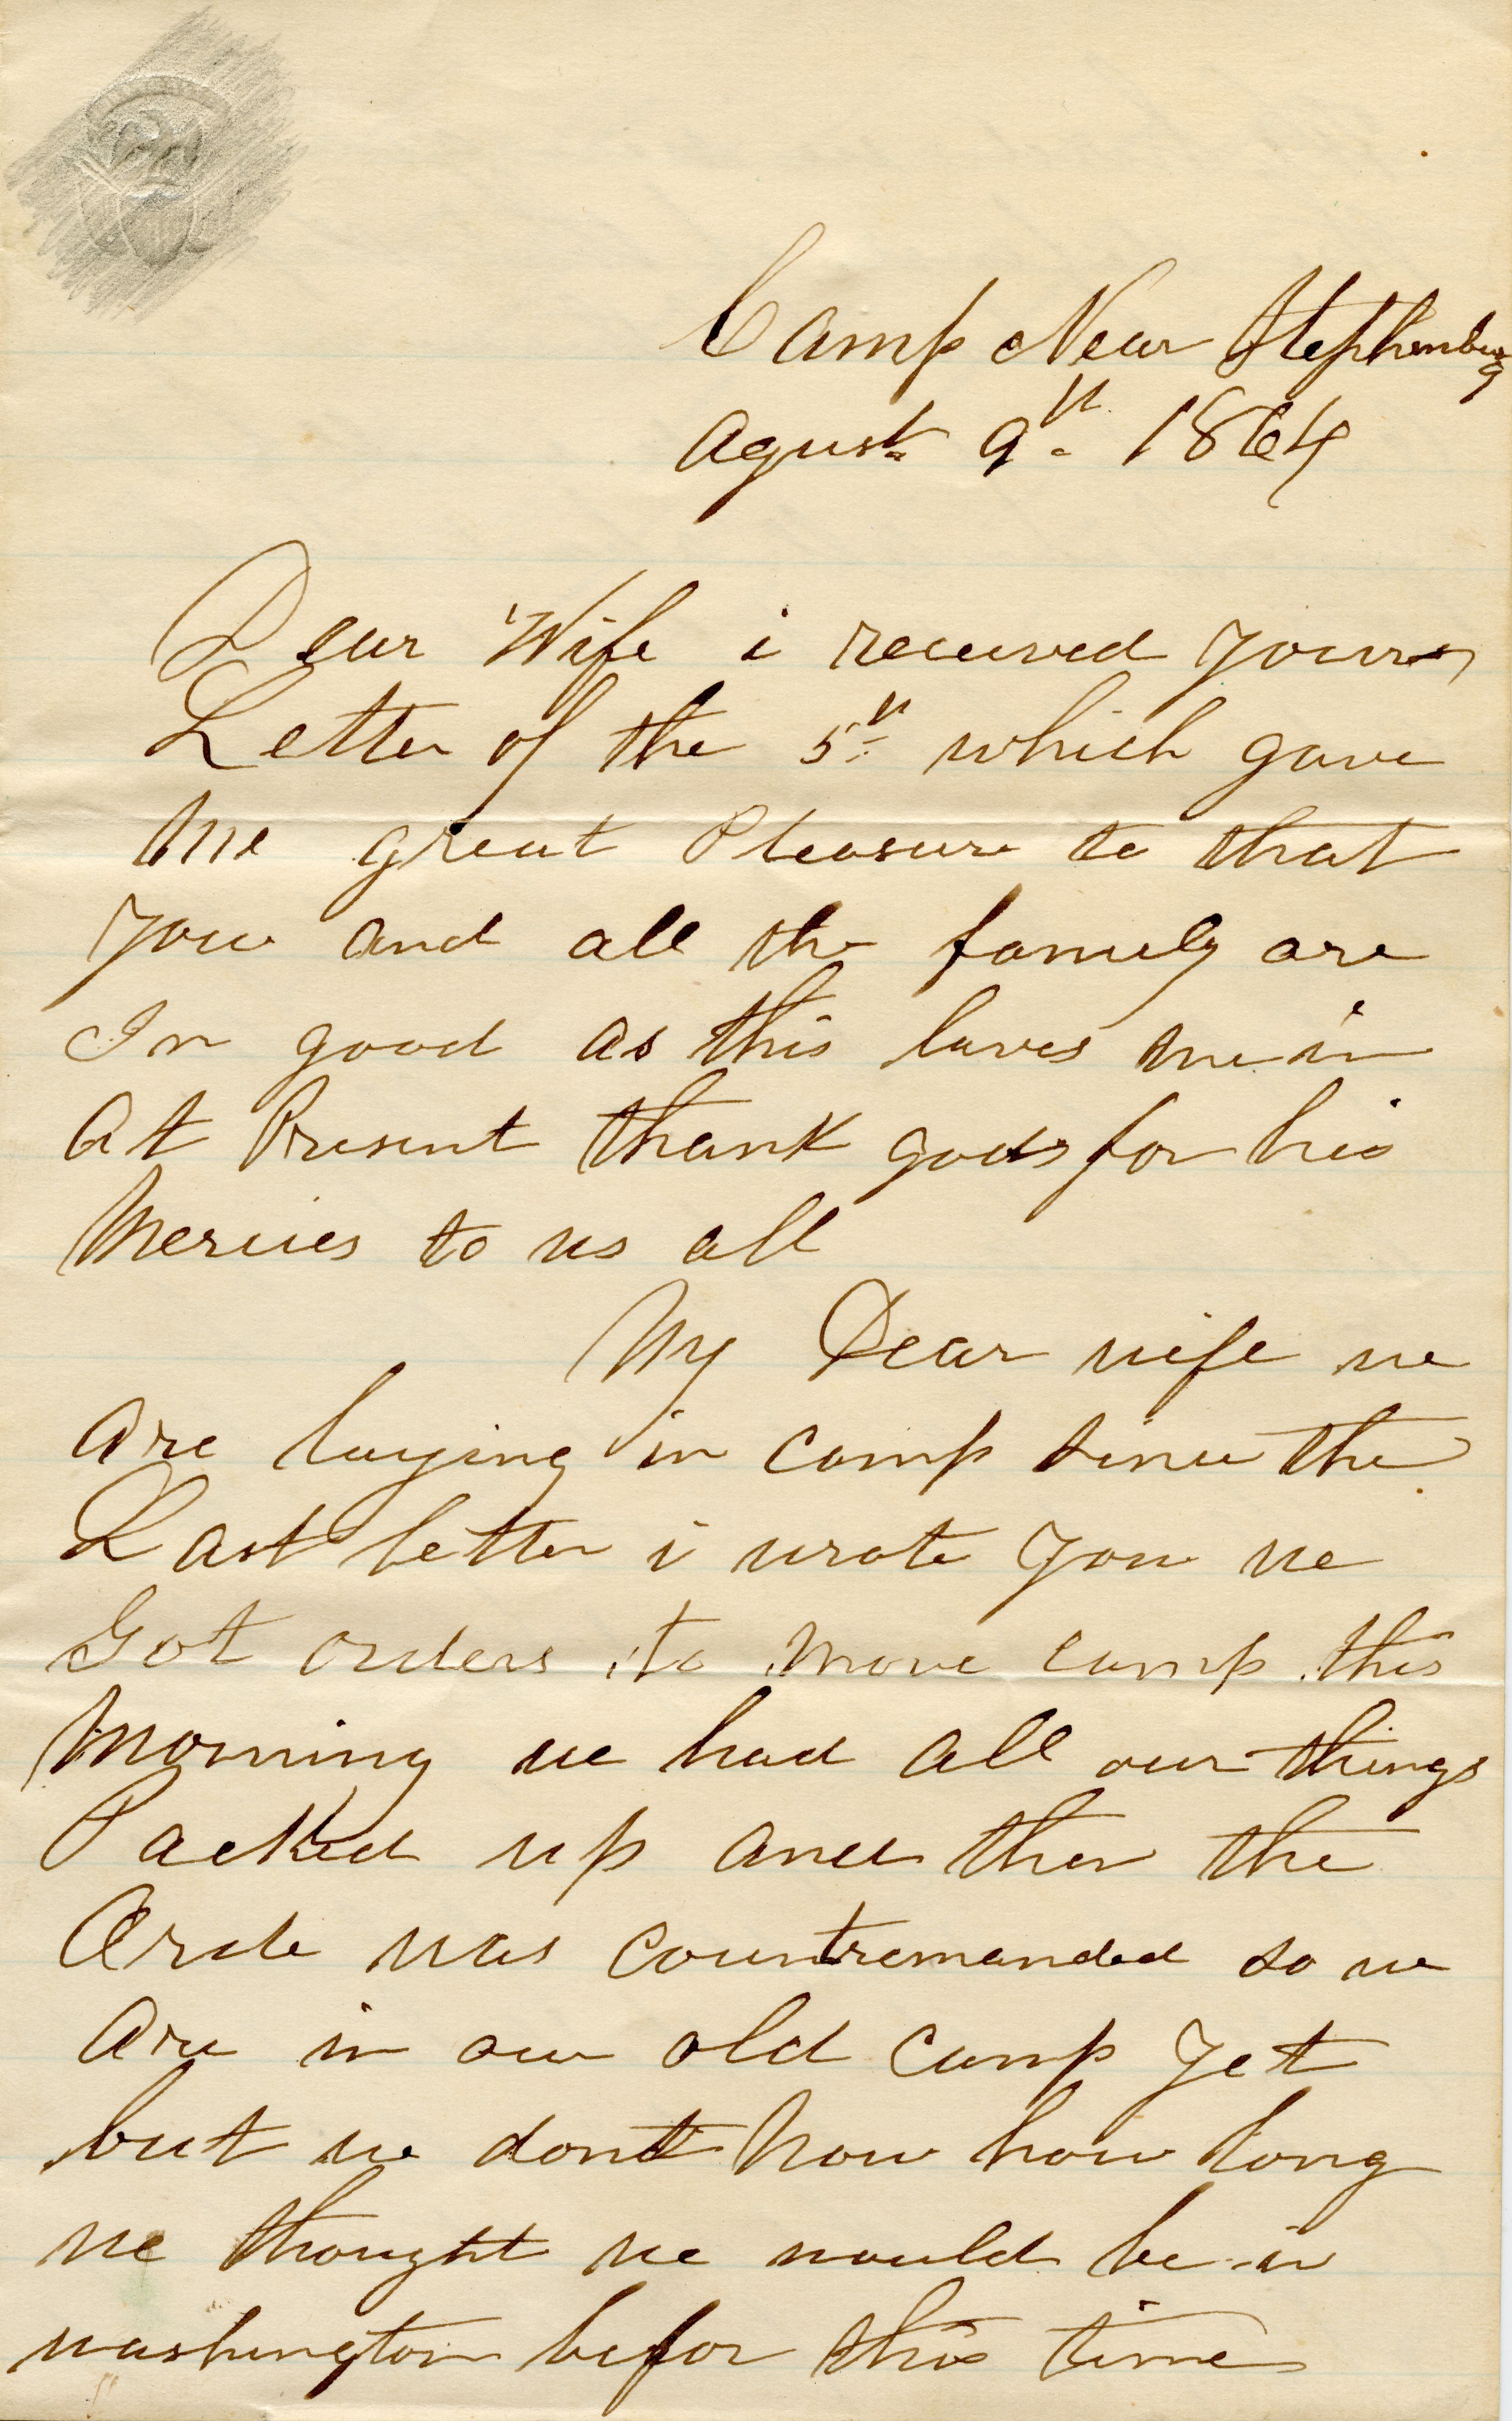 Camp Near Stephenburg
Agust 9th 1864
Dear Wife i received yours
Letter of the 5th which gave
Me great Pleasure to that
You and all the family are
In good as this laves me in
At Present thank god for his
Mercies to us all
My Dear wife we
Are laying in camp since the
Last letter i wrote you we
Got orders to move camp this
Morning we had all our things
Packed up and then the
Orde was countremanded so we
Are in our old camp yet
but we dont Now how long
we thought we would be in
washington befor this time